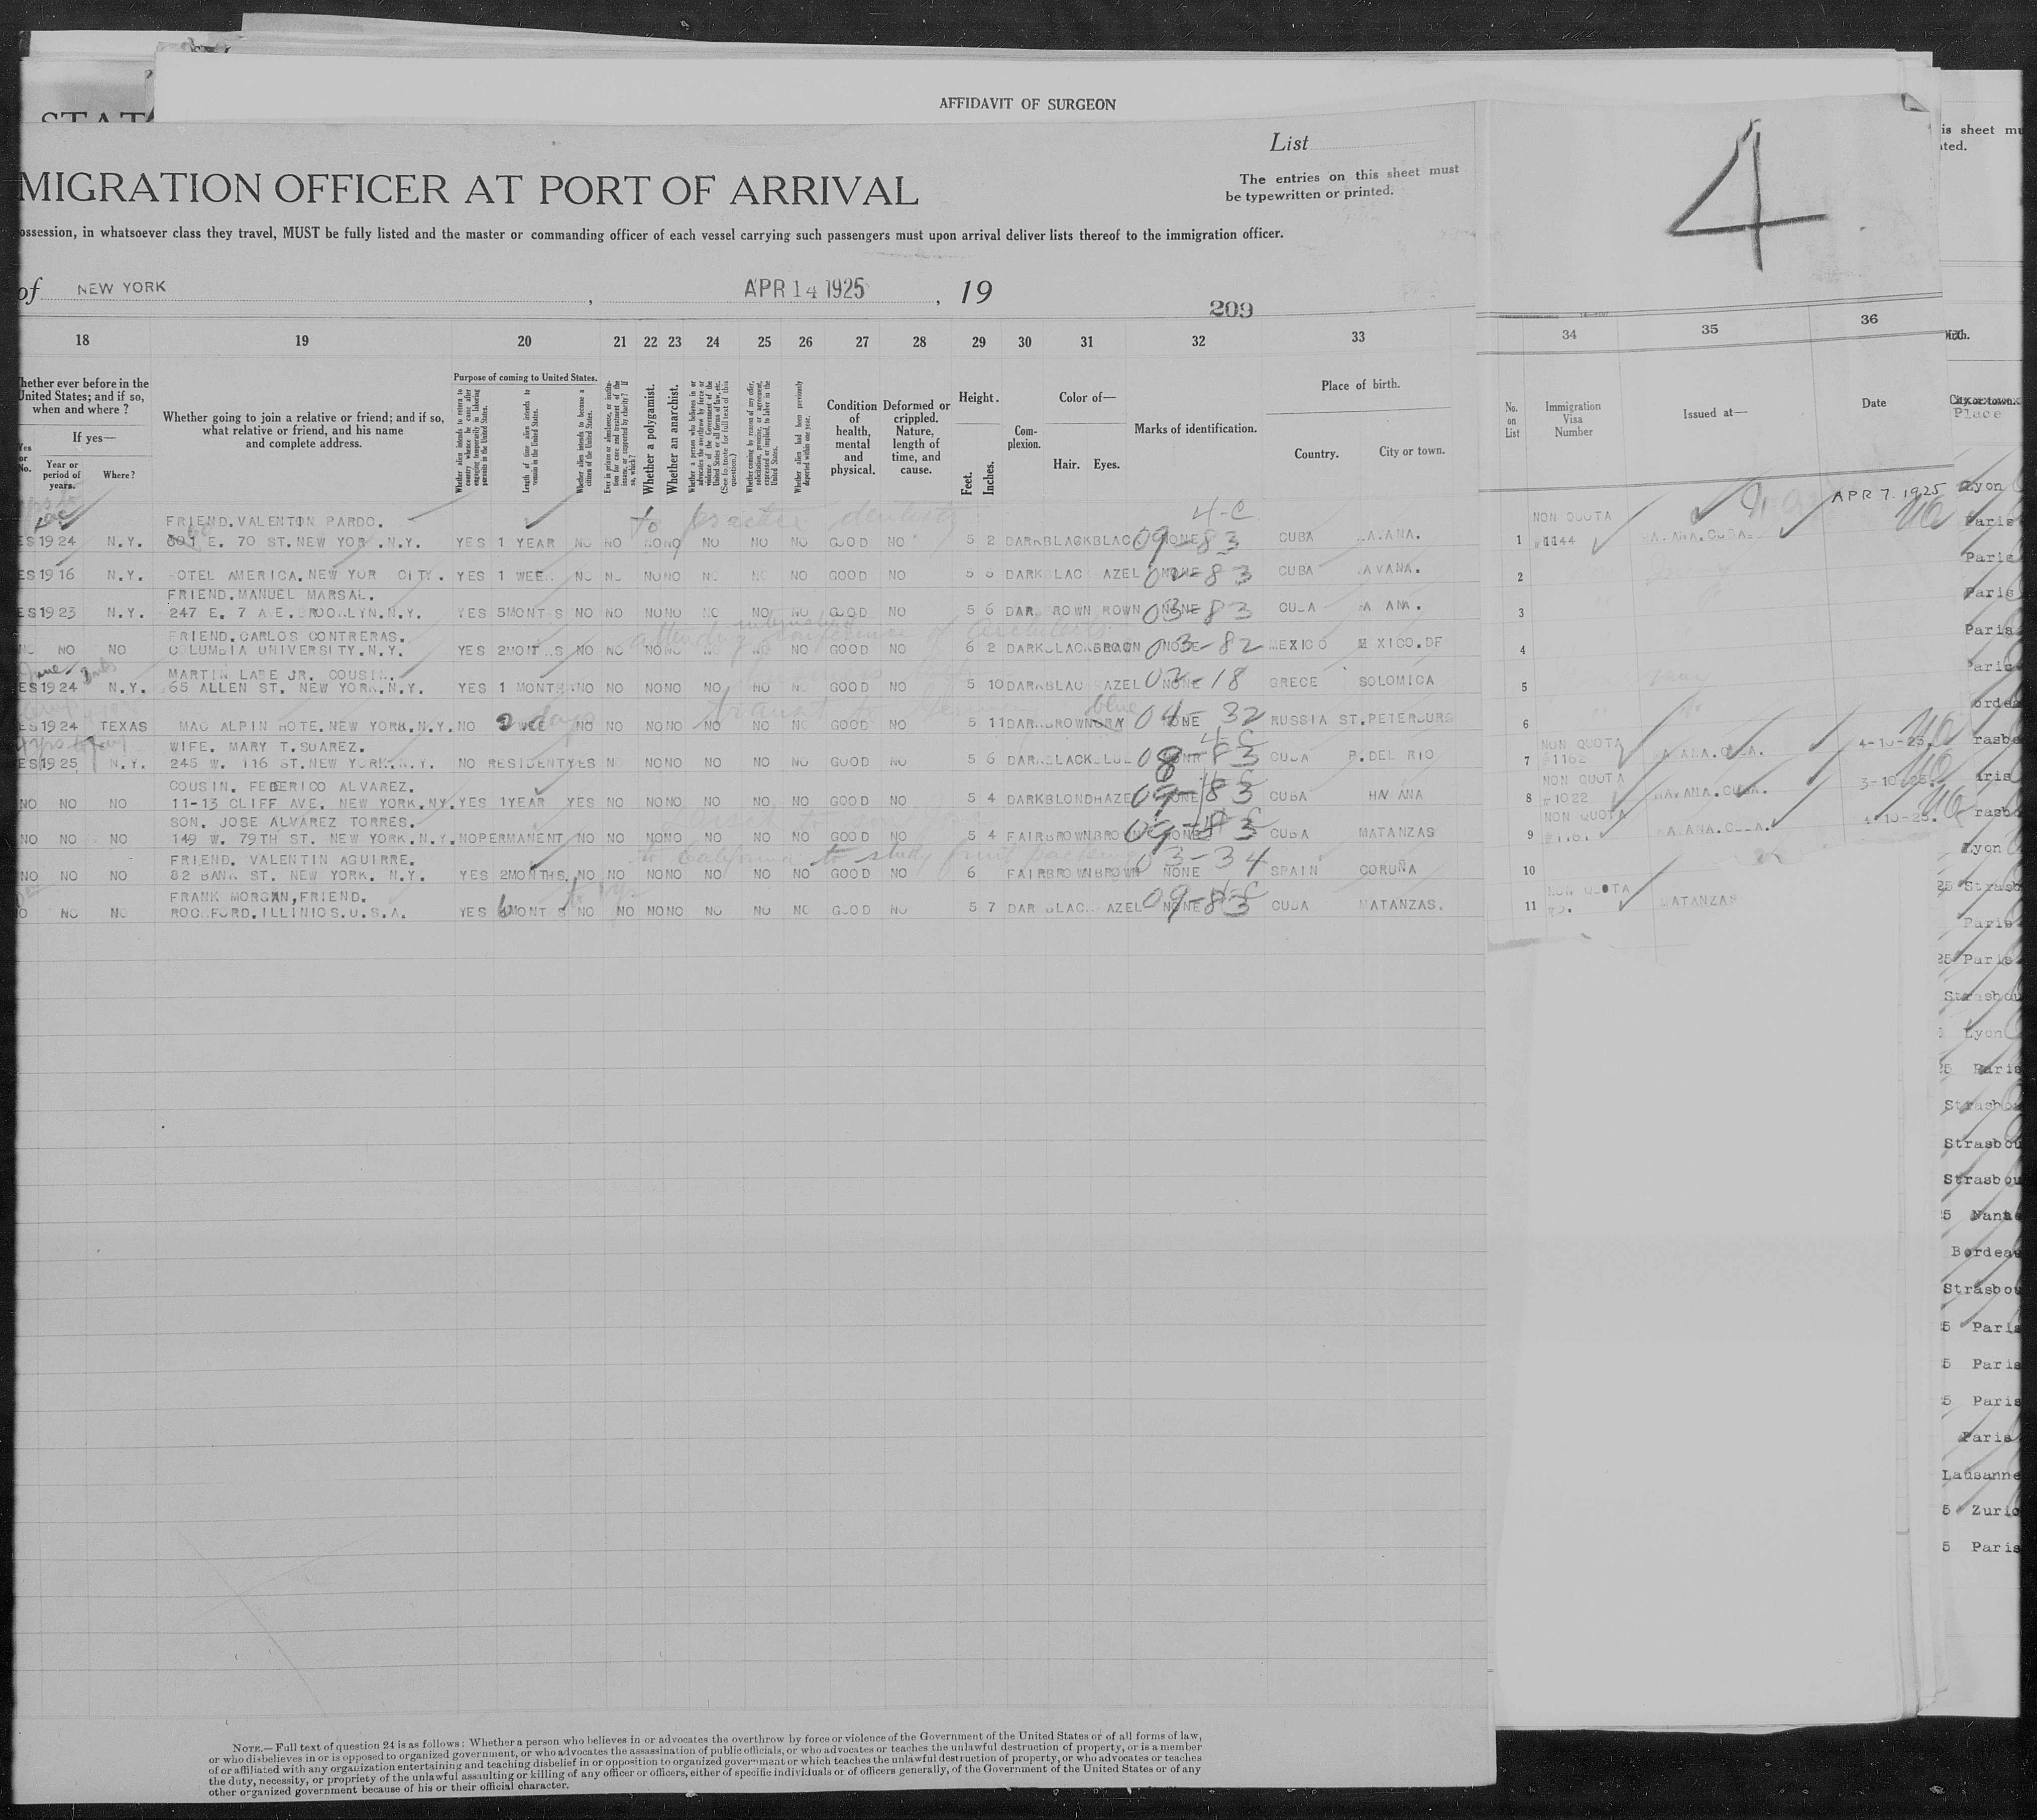 STAT
AFFIDAVIT OF SURGEON
List
4
MIGRATION OFFICER AT PORT OF ARRIVAL
The entries on this sheet must
be typewritten or printed.
is sheet mu
ted.
ossession, in whatsoever class they travel, MUST be fully listed and the master or commanding officer of each vessel carrying such passengers must upon arrival deliver lists thereof to the immigration officer.
of NEW YORK , APR 14 1925 , 19
209
18 19 20 21 22 23 24 25 26 27 28 29 30 31 32 33 34 35 36
hether ever before in the
United States; and if so,
when and where?
If yes—
Yes
or
No.
Year or
period of
years.
Where?
Whether going to join a relative or friend; and if so,
what relative or friend, and his name
and complete address.
Purpose of coming to United States.
Whether alien intends to return to
country whence he came after
engaging temporarily in laboring
pursuits in the United States.
Length of time alien intends to
remain in the United States.
Whether alien intends to become a
citizen of the United States.
Ever in prison or almshouse, or institu-
tion for care and treatment of the
insane, or supported by charity? If
so, which?
Whether a polygamist.
Whether an anarchist.
Whether a person who believes in or
advocates the overthrow by force or
violence of the Government of the
United States or all forms of law, etc.
(See footnote for full text of this
question.)
Whether coming by reason of any offer,
solicitation, promise, or agreement,
expressed or implied, to labor in the
United States.
Whether alien had been previously
deported within one year.
Condition
of
health,
mental
and
physical.
Deformed or
crippled.
Nature,
length of
time, and
cause.
Height.
Feet.
Inches.
Com-
plexion.
Color of—
Hair. Eyes.
Marks of identification.
Place of birth.
Country. City or town.
No.
on
List
Immigration
Visa
Number
Issued at—
Date
Place
to practice dentistry 4-C
FRIEND. VALENTIN PARDO.
NON QUOTA APR 7. 1925
ES 1924 N.Y. E. 70 ST. NEW YOR .N.Y. YES 1 YEAR NO NO NO NO NO NO NO GOOD NO 5 2 DARK BLACK BLAC NONE 09-83 CUBA AVANA. 1 #1144
ES 1916 N.Y. OTEL AMERICA. NEW YOR CITY. YES 1 WEE NO NO NO NO NO NO NO GOOD NO DARK LAC AZEL NONE CUBA AVANA. 2
FRIEND. MANUEL MARSAL.
ES 1923 N.Y. 247 E. 7 A E. ROOKLYN. N.Y. YES 5MONT S NO NO NO NO NO NO NO GOOD NO 5 6 DAR ROWN ROWN NONE 03-83 CUBA A ANA. 3
attending international conference of architects
FRIEND. CARLOS CONTRERAS.
NO NO NO COLUMBIA UNIVERSITY. N.Y. YES 2MONT S NO NO NO NO NO NO NO GOOD NO 6 2 DARK BLACK BROWN NONE 03-82 MEXICO M XICO. DF 4
MARTIN LABE JR. COUSIN.
ES 1924 N.Y. 65 ALLEN ST. NEW YORK. N.Y. YES 1 MONTH NO NO NO NO NO NO NO GOOD NO 5 10 DARK BLAC AZEL NONE 03-18 GRECE SOLOMICA 5
transit to blue
ES 1924 TEXAS MAC ALPIN HOTE. NEW YORK. N.Y. NO 2 days NO NO NO NO NO NO NO GOOD NO 5 11 DARK BROWN GRAY NONE 04-32 RUSSIA ST. PETERBURG 6
WIFE. MARY T. SUAREZ.
4-C NON QUOTA
ES 1925 N.Y. 245 W. 116 ST. NEW YORK. N.Y. NO RESIDENT YES NO NO NO NO NO NO GOOD NO 5 6 DARK BLACK BLUE NONE CUBA P. DEL RIO 7 #1162 4-10-25
COUSIN. FEDERICO ALVAREZ.
4-C NON QUOTA
NO NO NO 11-13 CLIFF AVE. NEW YORK. NY. YES 1YEAR YES NO NO NO NO NO NO GOOD NO 5 4 DARK BLOND HAZE NONE CUBA HAVANA 8 #1022 HAVANA. CUBA. 3-10-25
SON. JOSE ALVAREZ TORRES.
4-C NON QUOTA
NO NO NO 149 W. 79TH ST. NEW YORK. N.Y. NO PERMANENT NO NO NO NO NO NO NO GOOD NO 5 4 FAIR BROWN BROWN NONE 09-83 CUBA MATANZAS 9 #1161 4-10-25
to California to study fruit packing
FRIEND. VALENTIN AGUIRRE.
NO NO NO 82 BANK ST. NEW YORK. N.Y. YES 2MONTHS. NO NO NO NO NO NO NO GOOD NO 6 FAIR BROWN BROWN NONE 03-34 SPAIN CORUÑA 10
FRANK MORGAN, FRIEND.
4-C NON QUOTA
O NO NO ROCKFORD. ILLINIOS. U.S.A. YES 6 MONT S NO NO NO NO NO NO NO GOOD NO 5 7 DAR BLAC AZEL NONE 09-83 CUBA MATANZAS. 11 MATANZAS
Lyon
Paris
Paris
Paris
Paris
Paris
ordea
rasbo
aris
rasbo
Lyon
25 Strasb
Paris
25 Paris
Strasbou
Lyon
5 Paris
Strasbou
Strasbou
Strasbou
5 Nante
Bordea
Strasbou
5 Paris
5 Paris
5 Paris
Paris
Lausanne
5 Zuric
5 Paris
NOTE.—Full text of question 24 is as follows: Whether a person who believes in or advocates the overthrow by force or violence of the Government of the United States or of all forms of law,
or who disbelieves in or is opposed to organized government, or who advocates the assassination of public officials, or who advocates or teaches the unlawful destruction of property, or is a member
of or affiliated with any organization entertaining and teaching disbelief in or opposition to organized government or which teaches the unlawful destruction of property, or who advocates or teaches
the duty, necessity, or propriety of the unlawful assaulting or killing of any officer or officers, either of specific individuals or of officers generally, of the Government of the United States or of any
other organized government because of his or their official character.